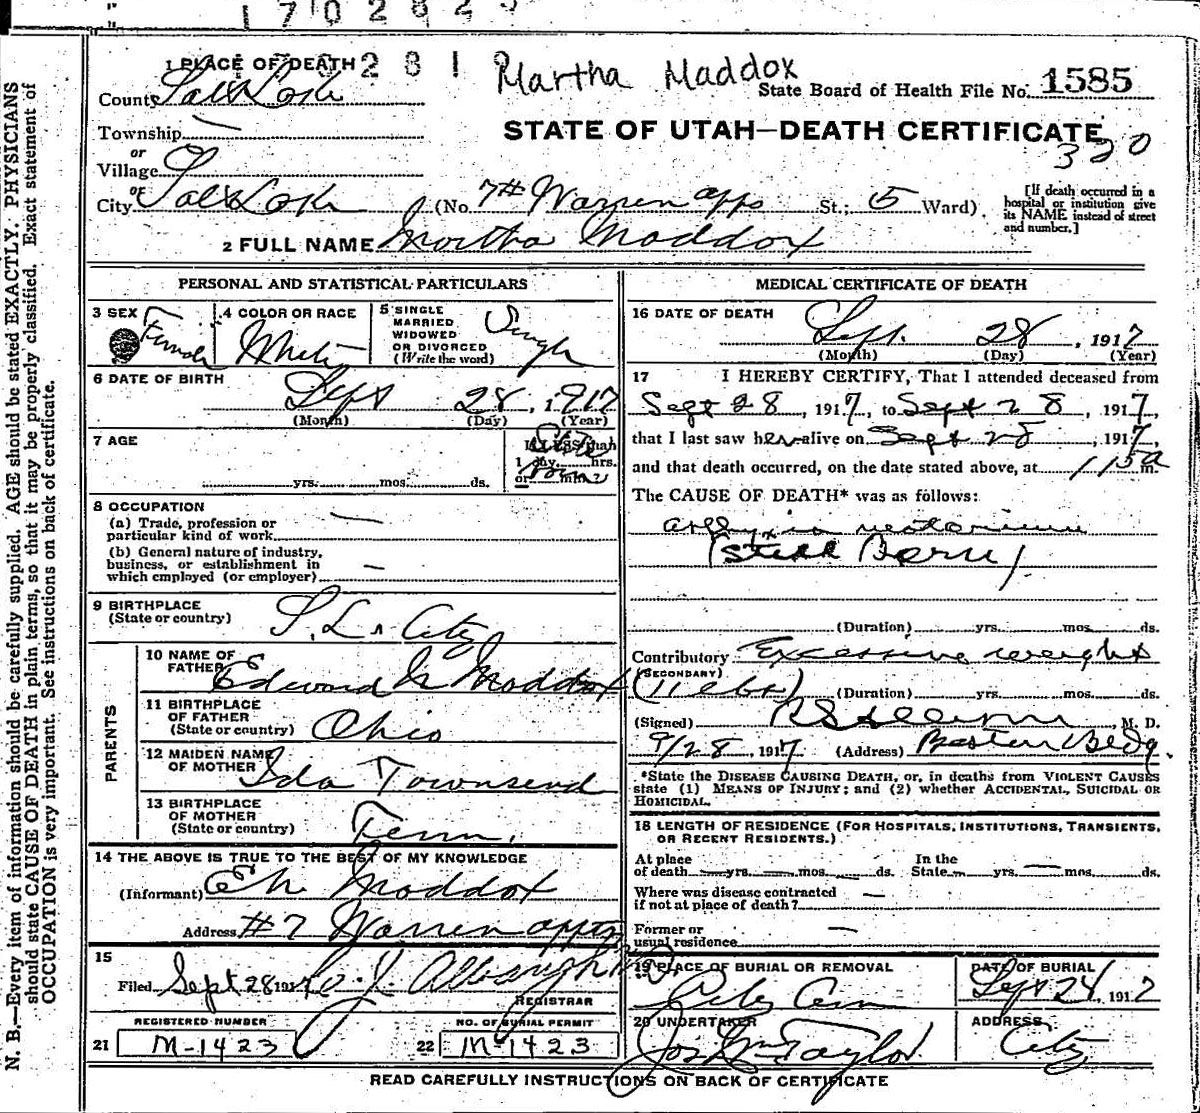 170292
281
Martha Maddox
1 PLACE OF DEATH
State Board of Health File No. 1585
County Salt Lake
STATE OF UTAH—DEATH CERTIFICATE
320
Township —
or
Village
or
City Salt Lake (No. 7 # Warren apps St.; 5 Ward)
[If death occurred in a
hospital or institution give
its NAME instead of street
and number.]
2 FULL NAME Martha Maddox
PERSONAL AND STATISTICAL PARTICULARS
3 SEX Female
4 COLOR OR RACE White
5 SINGLE
MARRIED
WIDOWED
OR DIVORCED
(Write the word) Single
6 DATE OF BIRTH Sept 28, 1917
(Month) (Day) (Year)
7 AGE
yrs. mos. ds.
If LESS than
1 day, hrs.
or min.?
Still
Born
8 OCCUPATION
(a) Trade, profession or
particular kind of work —
(b) General nature of industry,
business, or establishment in
which employed (or employer) —
9 BIRTHPLACE
(State or country) S. L. City
PARENTS
10 NAME OF
FATHER Edward N Maddox
11 BIRTHPLACE
OF FATHER
(State or country) Ohio
12 MAIDEN NAME
OF MOTHER Ida Townsend
13 BIRTHPLACE
OF MOTHER
(State or country) Tenn.
14 THE ABOVE IS TRUE TO THE BEST OF MY KNOWLEDGE
(Informant) E N Maddox
Address #7 Warren appts
15
Filed Sept 28 1917 J. Albaugh
REGISTRAR
REGISTERED NUMBER
21 M-1423
NO. OF BURIAL PERMIT
22 M-1423
MEDICAL CERTIFICATE OF DEATH
16 DATE OF DEATH
Sept. 28, 1917
(Month) (Day) (Year)
17 I HEREBY CERTIFY, That I attended deceased from
Sept 28, 1917, to Sept 28, 1917,
that I last saw her alive on Sept 28, 1917,
and that death occurred, on the date stated above, at 115a m.
The CAUSE OF DEATH* was as follows:
asphyxia neotorium
(Still Born)
(Duration) yrs. mos. ds.
Contributory Excessive weight
(SECONDARY)
(11 lbs) (Duration) yrs. mos. ds.
(Signed) M. D.
9/28 1917 (Address) Boston Bldg.
*State the DISEASE CAUSING DEATH, or, in deaths from VIOLENT CAUSES
state (1) MEANS OF INJURY; and (2) whether ACCIDENTAL, SUICIDAL OR
HOMICIDAL.
18 LENGTH OF RESIDENCE (FOR HOSPITALS, INSTITUTIONS, TRANSIENTS,
OR RECENT RESIDENTS.)
At place
of death — yrs. — mos. — ds.
In the
State — yrs. — mos. ds.
Where was disease contracted
if not at place of death? —
Former or
usual residence —
19 PLACE OF BURIAL OR REMOVAL
City Cem
DATE OF BURIAL
Sept 29, 1917
20 UNDERTAKER
Jos Wm Taylor
ADDRESS
City
READ CAREFULLY INSTRUCTIONS ON BACK OF CERTIFICATE
N. B.—Every item of information should be carefully supplied. AGE should be stated EXACTLY. PHYSICIANS
should state CAUSE OF DEATH in plain terms, so that it may be properly classified. Exact statement of
OCCUPATION is very important. See instructions on back of certificate.